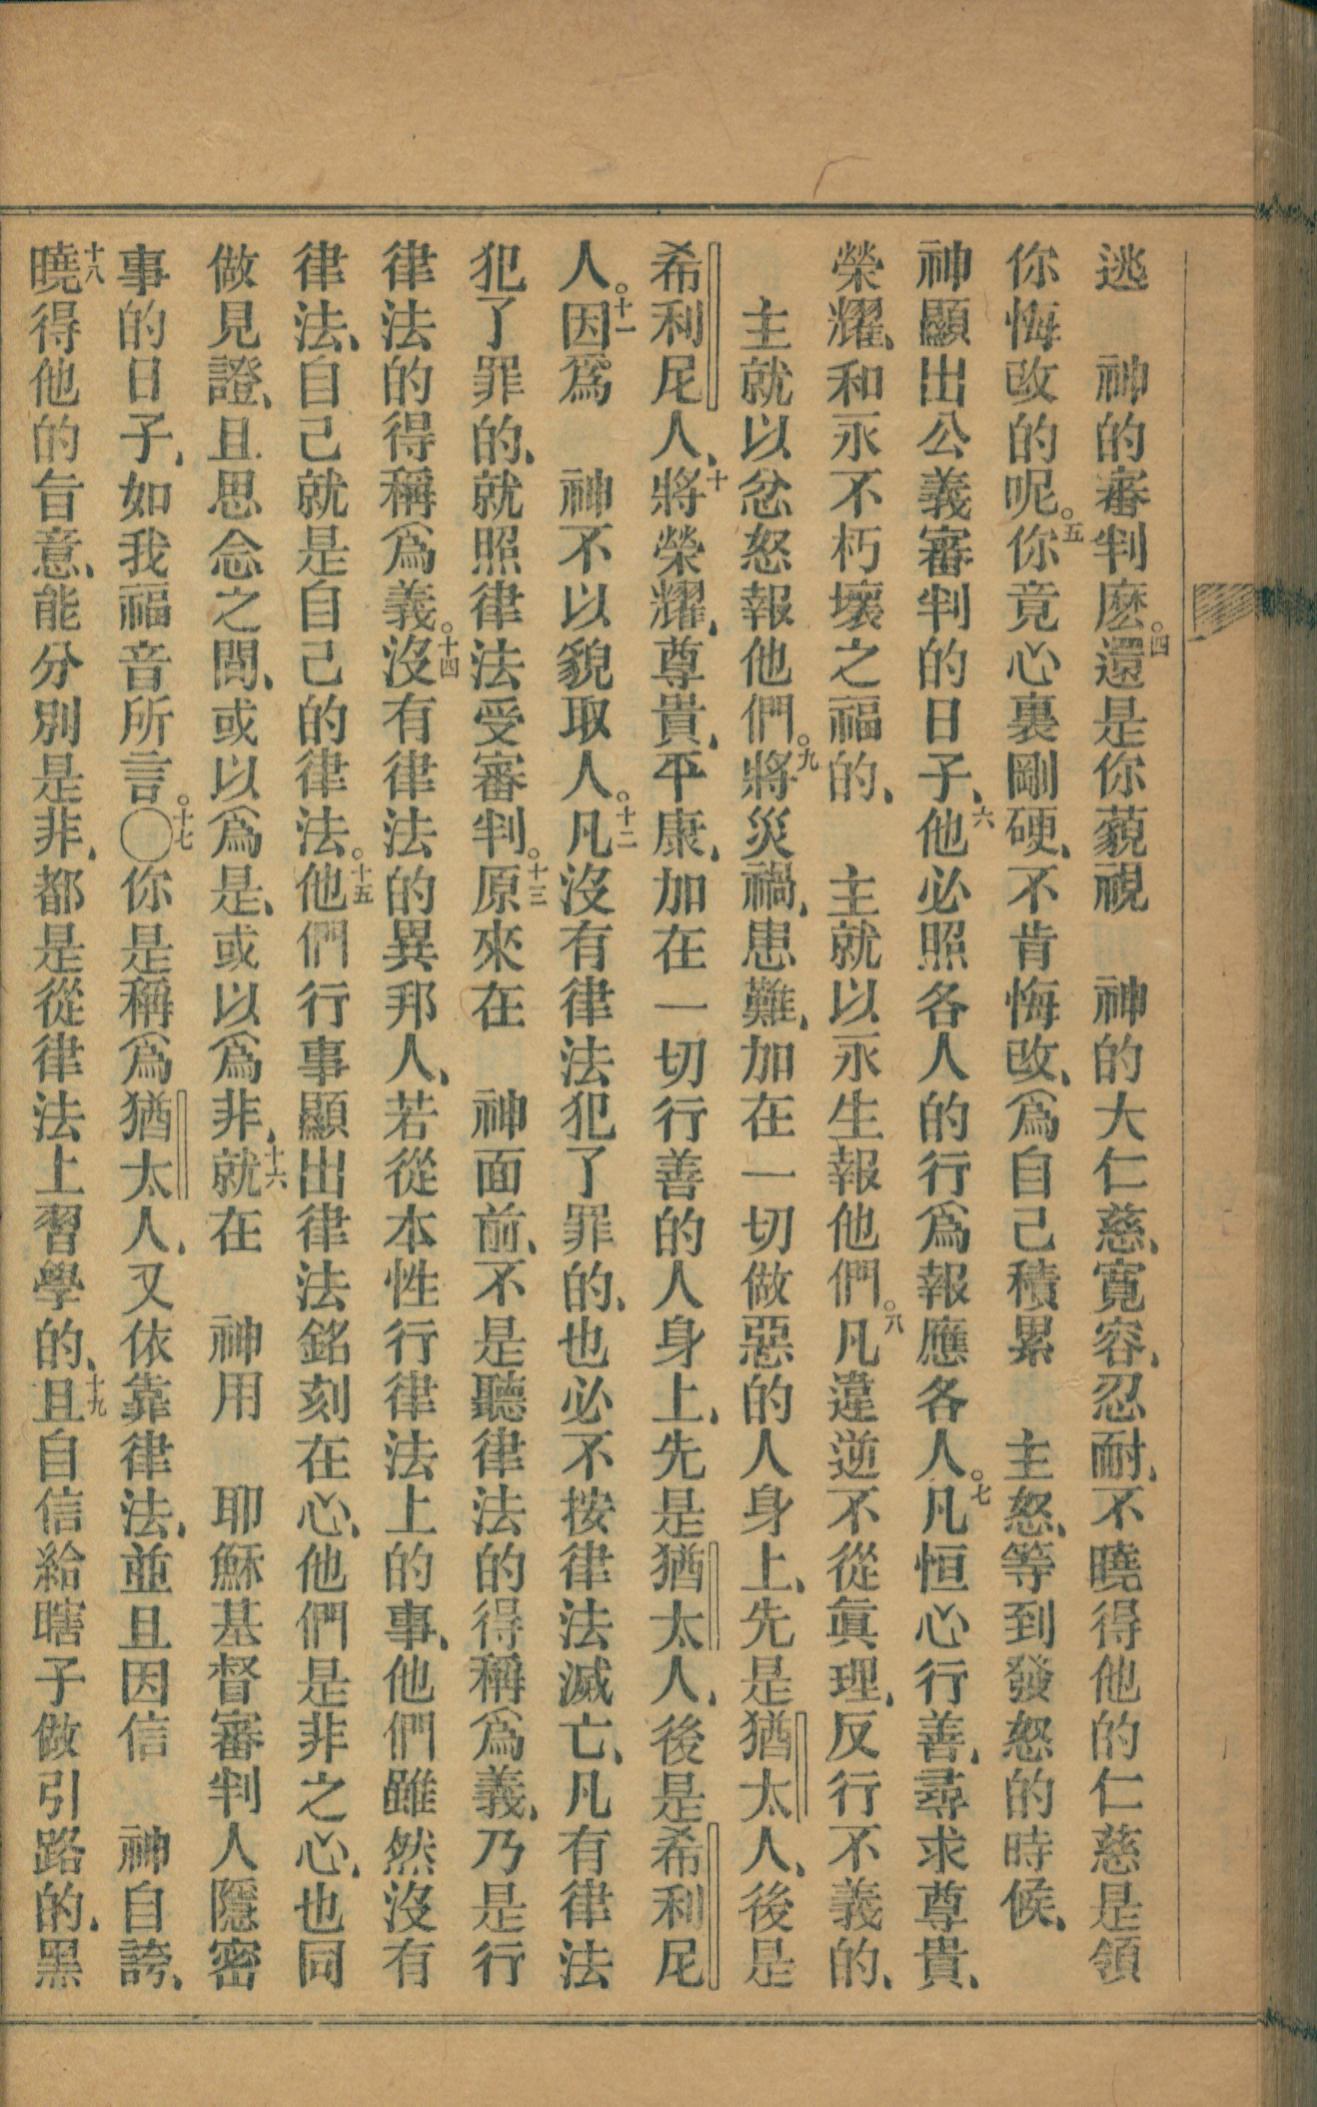 逃　神的審判麽。四還是你藐視　神的大仁慈、寬容、忍耐、不曉得他的仁慈是領
你悔改的呢。五你竟心裏剛硬、不肯悔改、爲自己積累　主怒、等到發怒的時候、
神顯出公義審判的日子、六他必照各人的行爲報應各人。七凡恒心行善、尋求尊貴、
榮耀、和永不朽壞之福的、　主就以永生報他們。八凡違逆不從眞理、反行不義的、
　主就以忿怒報他們。九將災禍、患難、加在一切做惡的人身上、先是猶太人、後是
希利尼人、十將榮耀、尊貴、平康、加在一切行善的人身上、先是猶太人、後是希利尼
人。十一因爲　神不以貌取人。十二凡沒有律法犯了罪的、也必不按律法滅亡、凡有律法
犯了罪的、就照律法受審判。十三原來在　神面前、不是聽律法的得稱爲義、乃是行
律法的得稱爲義。十四沒有律法的異邦人、若從本性行律法上的事、他們雖然沒有
律法、自己就是自己的律法。十五他們行事顯出律法銘刻在心、他們是非之心、也同
做見證、且思念之間、或以爲是、或以爲非、十六就在　神用　耶穌基督審判人隱密
事的日子、如我福音所言。十七〇你是稱爲猶太人、又依靠律法、並且因信　神自誇、
十八曉得他的旨意、能分別是非、都是從律法上習學的、十九且自信給瞎子做引路的、黑